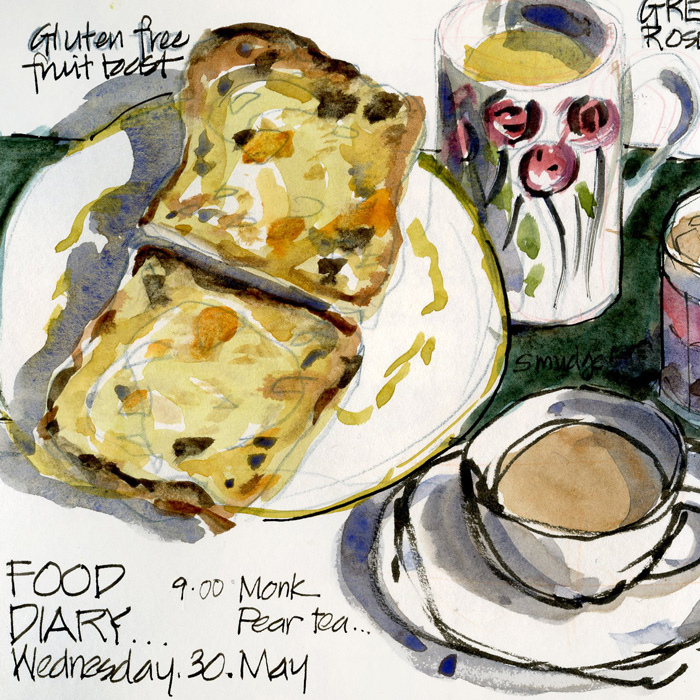 Gluten free
fruit toast
GRE
ROS
smudge
FOOD
DIARY...
Wednesday. 30. May
9.00 Monk
Pear tea...